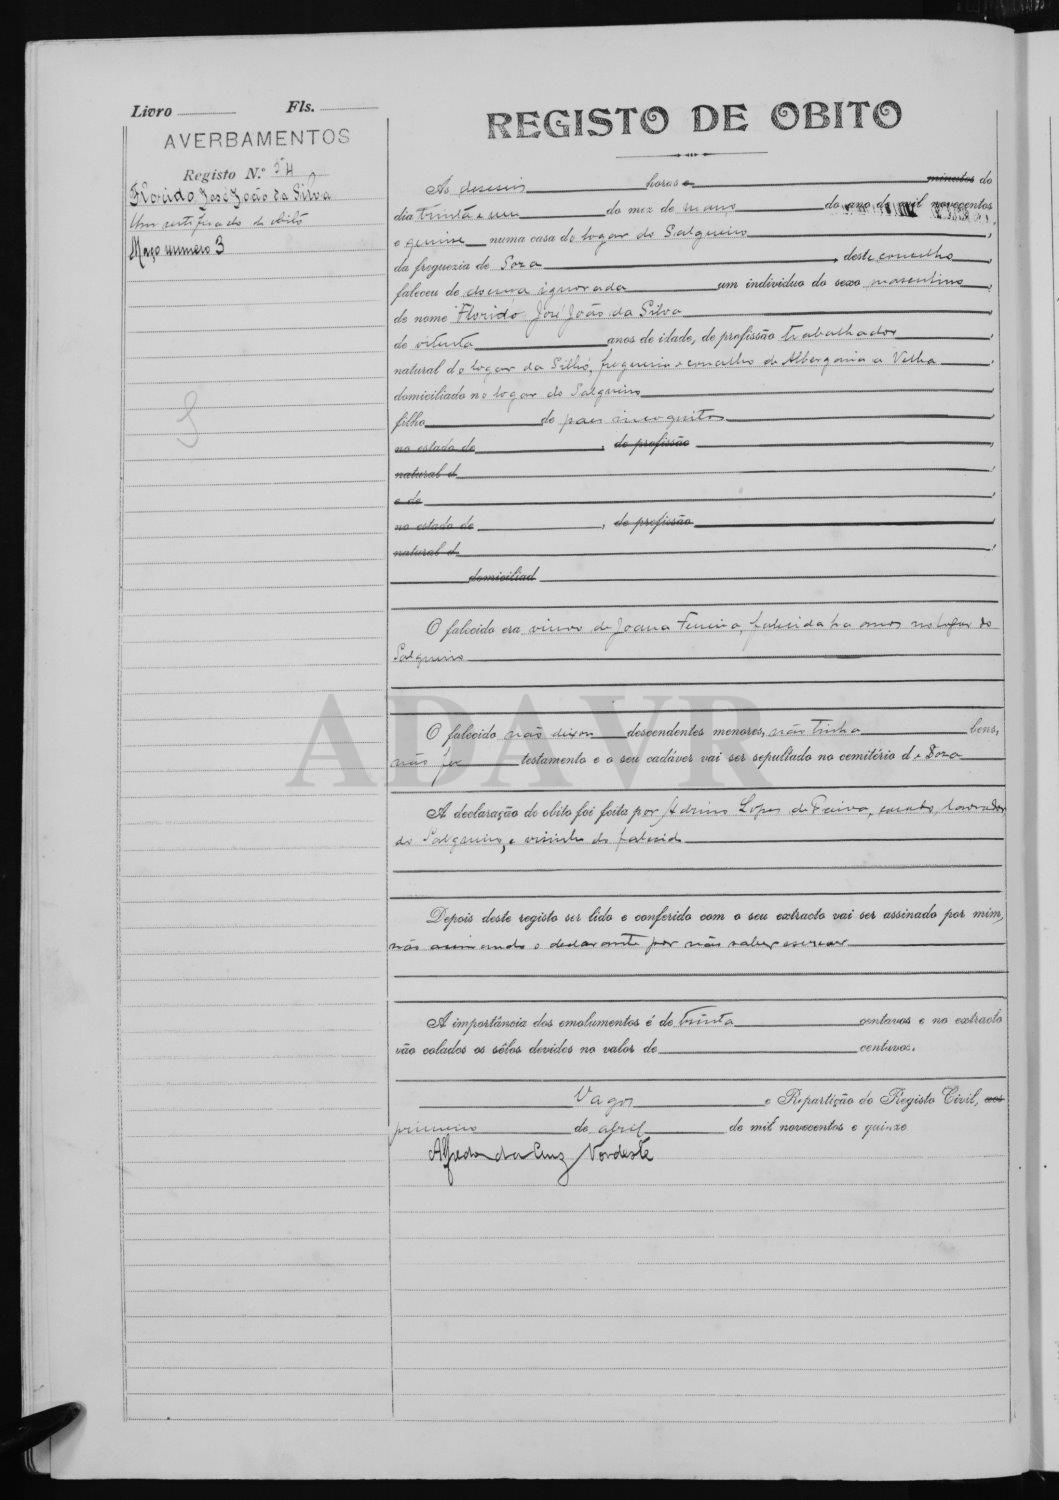 Livro Fls.
AVERBAMENTOS
Registo N.º 54
Florido José João da Silva
Um certificado de obito
Maço numero 3
REGISTO DE OBITO
Ás deseseis horas e minutos do
dia trinta e um do mez de março do ano de mil novecentos
e quinze numa casa do logar do Salgueiro,
da freguezia de Soza, deste concelho,
faleceu de doença ignorada um individuo do sexo masculino,
de nome Florido José João da Silva
de oitenta anos de idade, de profissão trabalhador,
natural do logar da Silhó, freguezia e concelho de Albergaria a Velha,
domiciliado no logar do Salgueiro,
filho de paes incognitos,
no estado de, de profissão,
natural d,
e de,
no estado de, de profissão,
natural d,
domiciliad
O falecido era viuvo de Joana Ferreira, falecida ha anos no logar do
Salgueiro
ADAVR
O falecido não deixou descendentes menores, não tinha bens,
não fez testamento e o seu cadáver vai ser sepultado no cemitério de Soza
A declaração de obito foi feita por Adrino Lopes de Paiva, casado, lavrador
do Salgueiro, e visinho do falecido
Depois deste registo ser lido e conferido com o seu extracto vai ser assinado por mim,
não assinando o declarante por não saber escrever
A importância dos emolumentos é de trinta centavos e no extracto
vão colados os sêlos devidos no valor de centavos.
Vagos e Repartição do Registo Civil, aos
primeiro de abril de mil novecentos e quinze
Alfredo da Cruz Nordeste